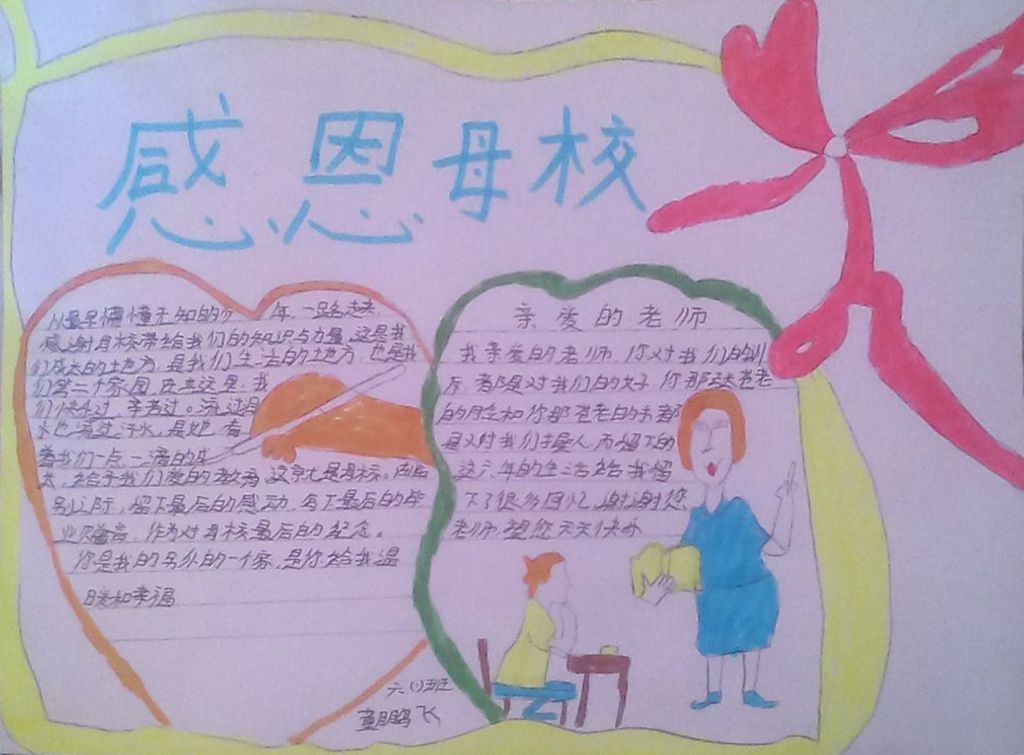 感恩母校
从最早懵懂无知的六年,一路走来
感谢母校带给我们的知识与力量,这是我
们成长的地方,是我们生活的地方,也是我
们第二个家园,在这里,我
们快乐过,辛苦过。流过
水也流过汗水,是她,看
着我们一点一滴的
给予我们爱的教育,这就是母校。
别之际,留下最后的感动,写下最后的毕
业赠言,作为对母校最后的纪念。
你是我的另外的一个家,是你给我温
暖和幸福
亲爱的老师
我亲爱的老师,你对我们的训
斥,都是对我们的好,你那张苍老
的脸和你那苍老的手都
是对我们操心而留下的
这六年的生活给我留
下了很多回忆,谢谢您
老师,望您天天快乐
六(1)班
童鹏飞